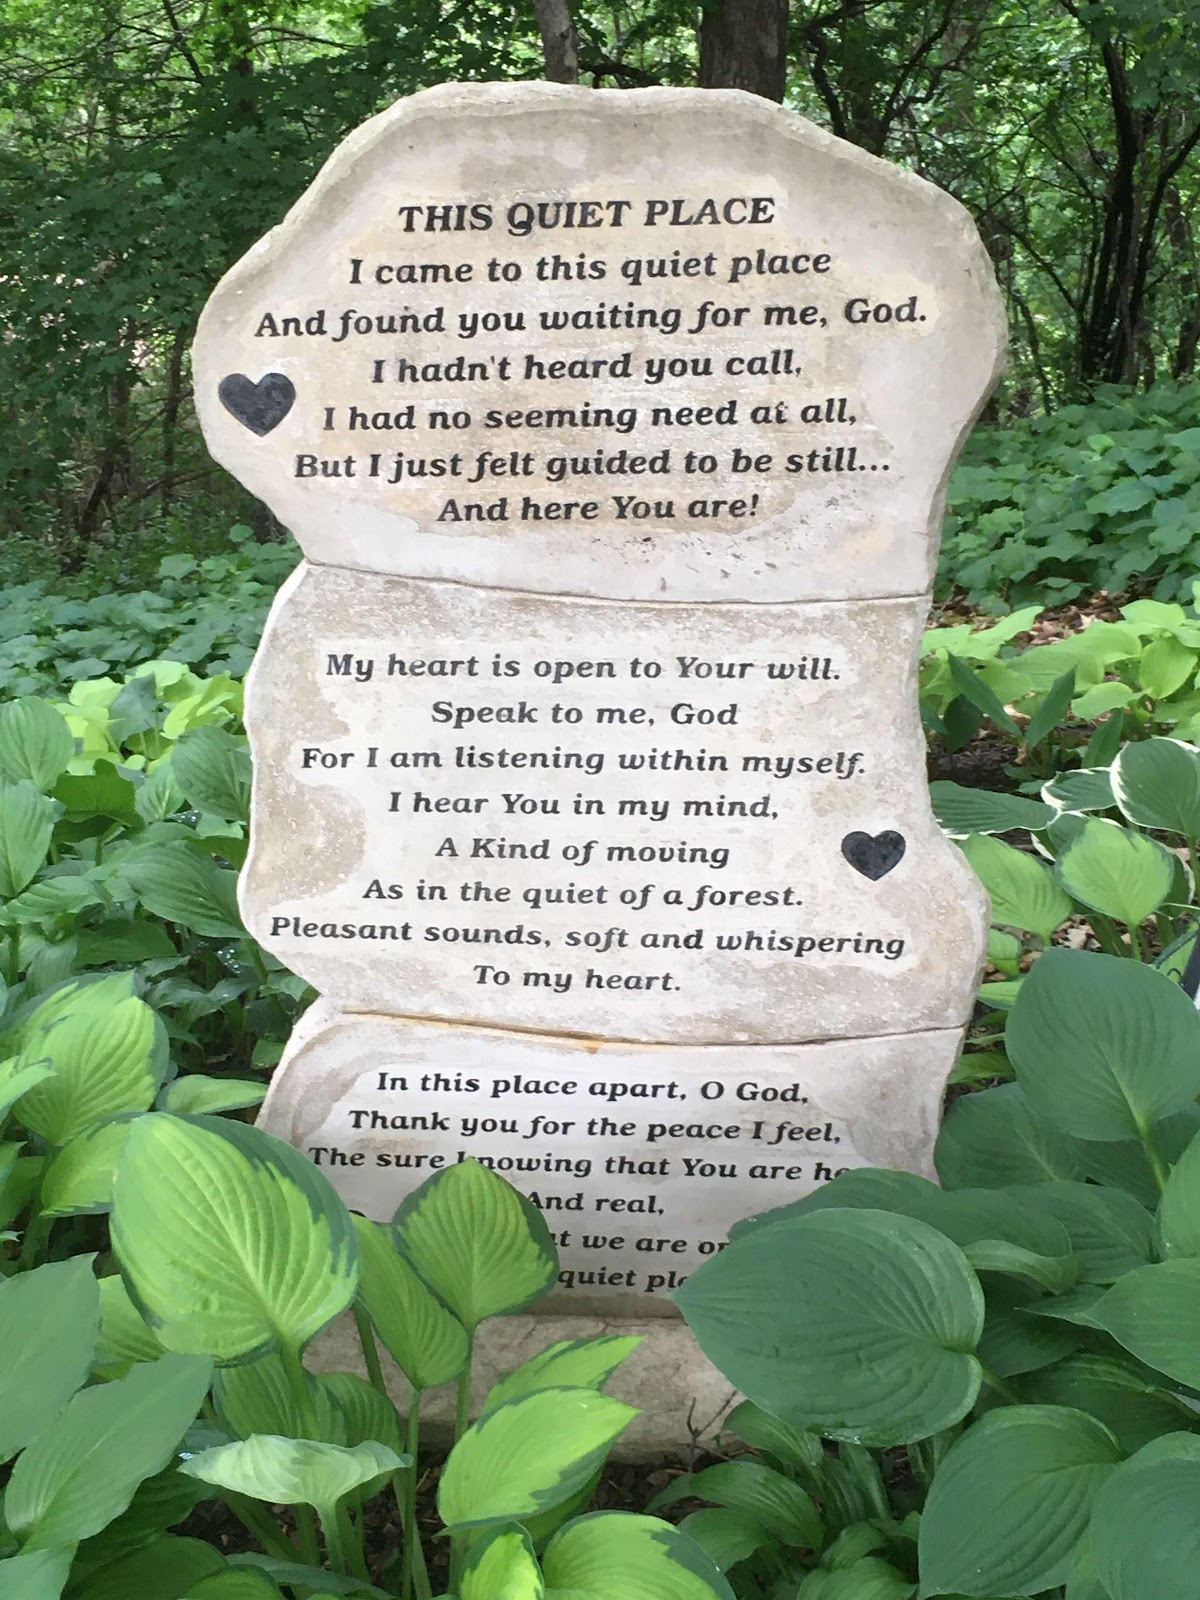 THIS QUIET PLACE
I came to this quiet place
And found you waiting for me, God.
I hadn't heard you call,
I had no seeming need at all,
But I just felt guided to be still...
And here You are!
My heart is open to Your will.
Speak to me, God
For I am listening within myself.
I hear You in my mind,
A Kind of moving
As in the quiet of a forest.
Pleasant sounds, soft and whispering
To my heart.
In this place apart, O God,
Thank you for the peace I feel,
The sure knowing that You are
And real,
we are
quiet